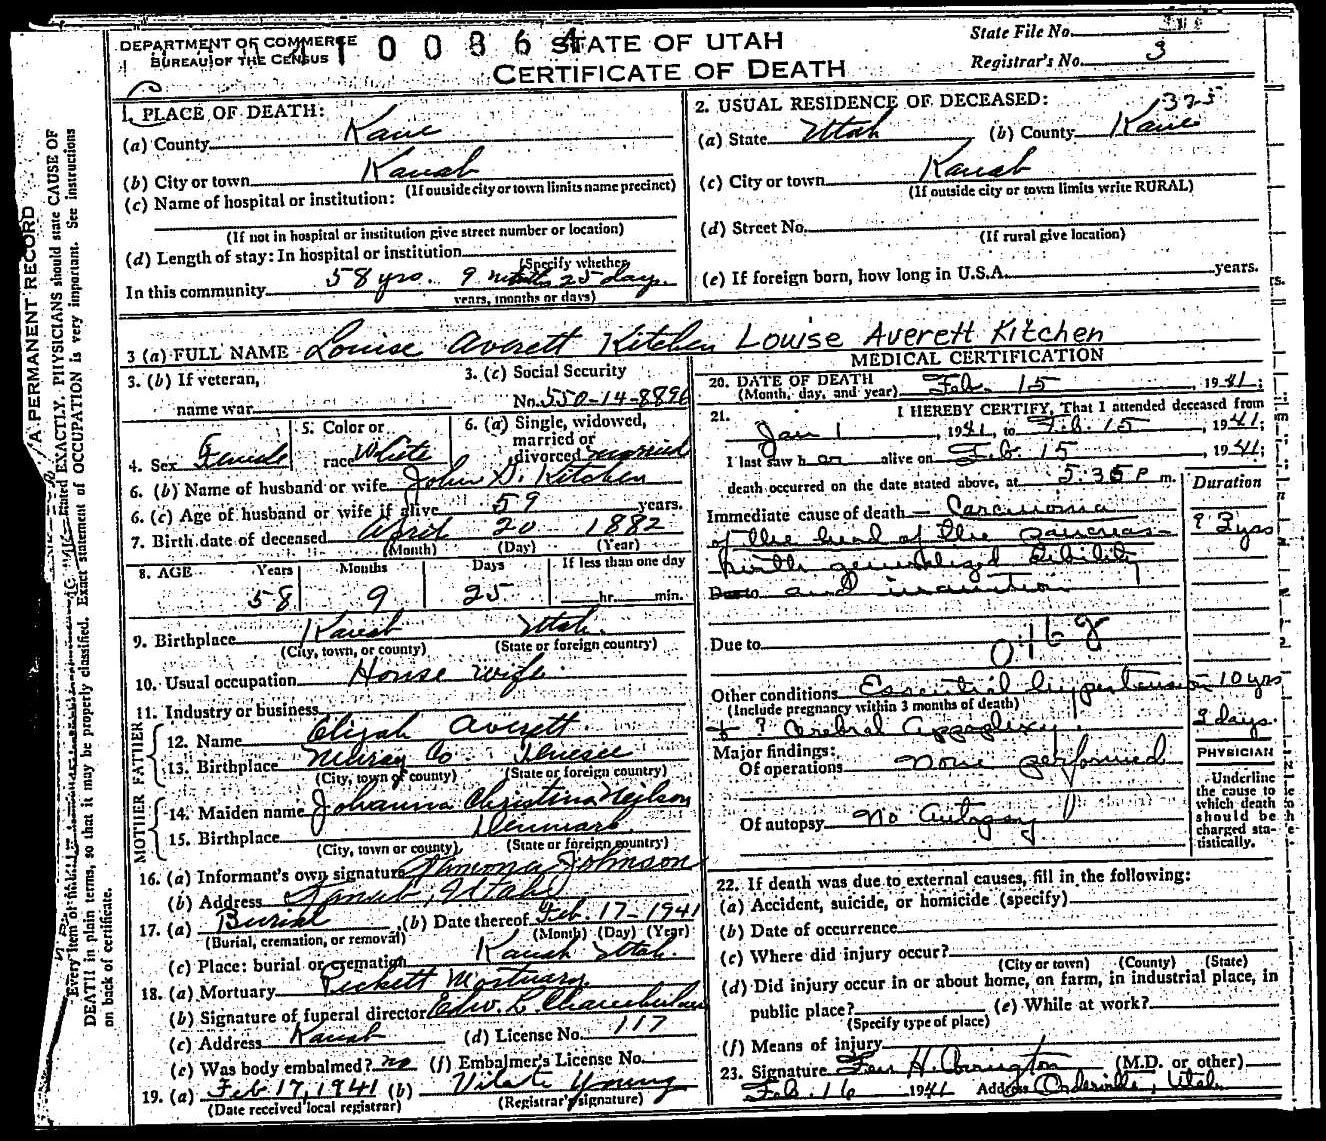 DEPARTMENT OF COMMERCE
BUREAU OF THE CENSUS
4100864
STATE OF UTAH
CERTIFICATE OF DEATH
State File No.
Registrar's No. 3
A PERMANENT RECORD
Every item of
stated EXACTLY. PHYSICIANS should state CAUSE OF
DEATH in plain terms, so that it may be properly classified. Exact statement of OCCUPATION is very important. See instructions
on back of certificate.
1. PLACE OF DEATH:
(a) County Kane
(b) City or town Kanab
(If outside city or town limits name precinct)
(c) Name of hospital or institution:
(If not in hospital or institution give street number or location)
(d) Length of stay: In hospital or institution
(Specify whether
In this community 58 yrs. 9 months 25 days.
years, months or days)
2. USUAL RESIDENCE OF DECEASED:
325
(a) State Utah (b) County Kane
(c) City or town Kanab
(If outside city or town limits write RURAL)
(d) Street No.
(If rural give location)
(e) If foreign born, how long in U.S.A. years.
3 (a) FULL NAME Louise Averett Kitchen Louise Averett Kitchen
3. (b) If veteran,
name war
3. (c) Social Security
No. 550-14-8896
4. Sex Female
5. Color or
race White
6. (a) Single, widowed,
married or
divorced married
6. (b) Name of husband or wife John G. Kitchen
6. (c) Age of husband or wife if alive 59 years.
7. Birth date of deceased April 20 1882
(Month) (Day) (Year)
8. AGE Years Months Days If less than one day
58 9 25 hr. min.
9. Birthplace Kanab Utah.
(City, town, or county) (State or foreign country)
10. Usual occupation House wife
11. Industry or business
FATHER
12. Name Elijah Averett
13. Birthplace Murray Co
(City, town or county) (State or foreign country)
MOTHER
14. Maiden name Johanna Christina Neilson
15. Birthplace Denmark.
(City, town or county) (State or foreign country)
16. (a) Informant's own signature Ramona Johnson
(b) Address Kanab, Utah
17. (a) Burial (b) Date thereof Feb. 17-1941
(Burial, cremation, or removal) (Month) (Day) (Year)
(c) Place: burial or cremation Kanab Utah.
18. (a) Mortuary Pickett Mortuary
(b) Signature of funeral director Edw. L. Chamberlain
(c) Address Kanab (d) License No. 117
(e) Was body embalmed? no (f) Embalmer's License No.
19. (a) Feb 17, 1941 (b) Vilate Young
(Date received local registrar) (Registrar's signature)
MEDICAL CERTIFICATION
20. DATE OF DEATH Feb. 15, 1941;
(Month, day, and year)
21. I HEREBY CERTIFY, That I attended deceased from
Jan 1, 1941, to Feb. 15, 1941;
I last saw her alive on Feb 15, 1941;
death occurred on the date stated above, at 5:35 P m.
Duration
Immediate cause of death Carcinoma
of the head of the pancreas
? 2 yrs
with generalized debility
Due to and inanition
Due to
0468
Other conditions Essential hypertension 10 yrs
(Include pregnancy within 3 months of death)
+ ? Cerebral apoplexy. 3 days.
Major findings:
Of operations None performed
Of autopsy No autopsy
PHYSICIAN
Underline
the cause to
which death
should be
charged sta-
tistically.
22. If death was due to external causes, fill in the following:
(a) Accident, suicide, or homicide (specify)
(b) Date of occurrence
(c) Where did injury occur?
(City or town) (County) (State)
(d) Did injury occur in or about home, on farm, in industrial place, in
public place? (e) While at work?
(Specify type of place)
(f) Means of injury
23. Signature H. Arrington (M.D. or other)
Feb. 16 1941 Address Orderville, Utah